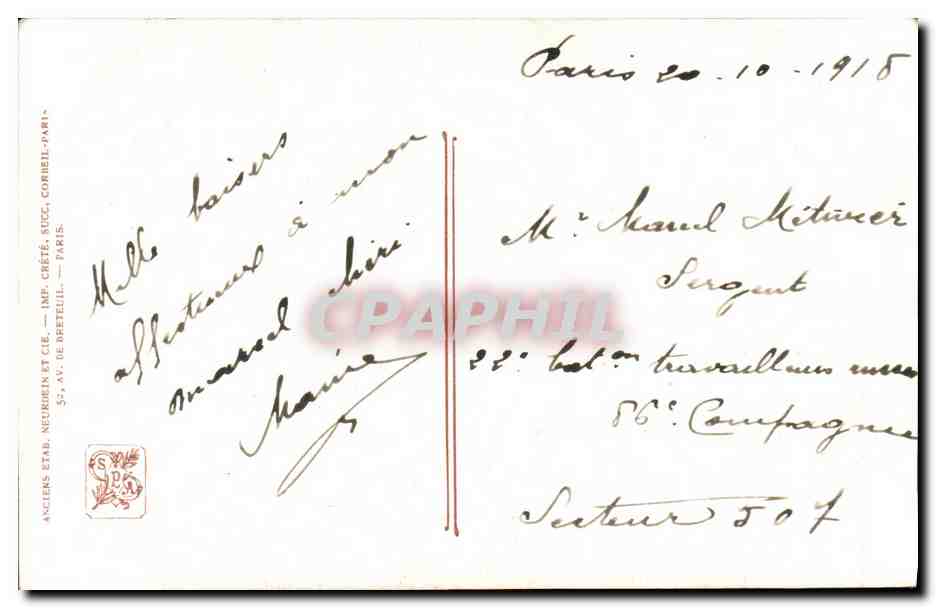 Paris 20-10-1918
Mille baisers
affectueux à mon
Marcel chéri
Marie
Mr Marcel Métivier
Sergent
22e baton travailleurs russes
86e Compagnie
Secteur 507
ANCIENS ETAB. NEURDEIN ET CIE. — IMP. CRÉTÉ, SUCC, CORBEIL-PARIS
52, AV. DE BRETEUIL. — PARIS.
SPA
CPAPHIL